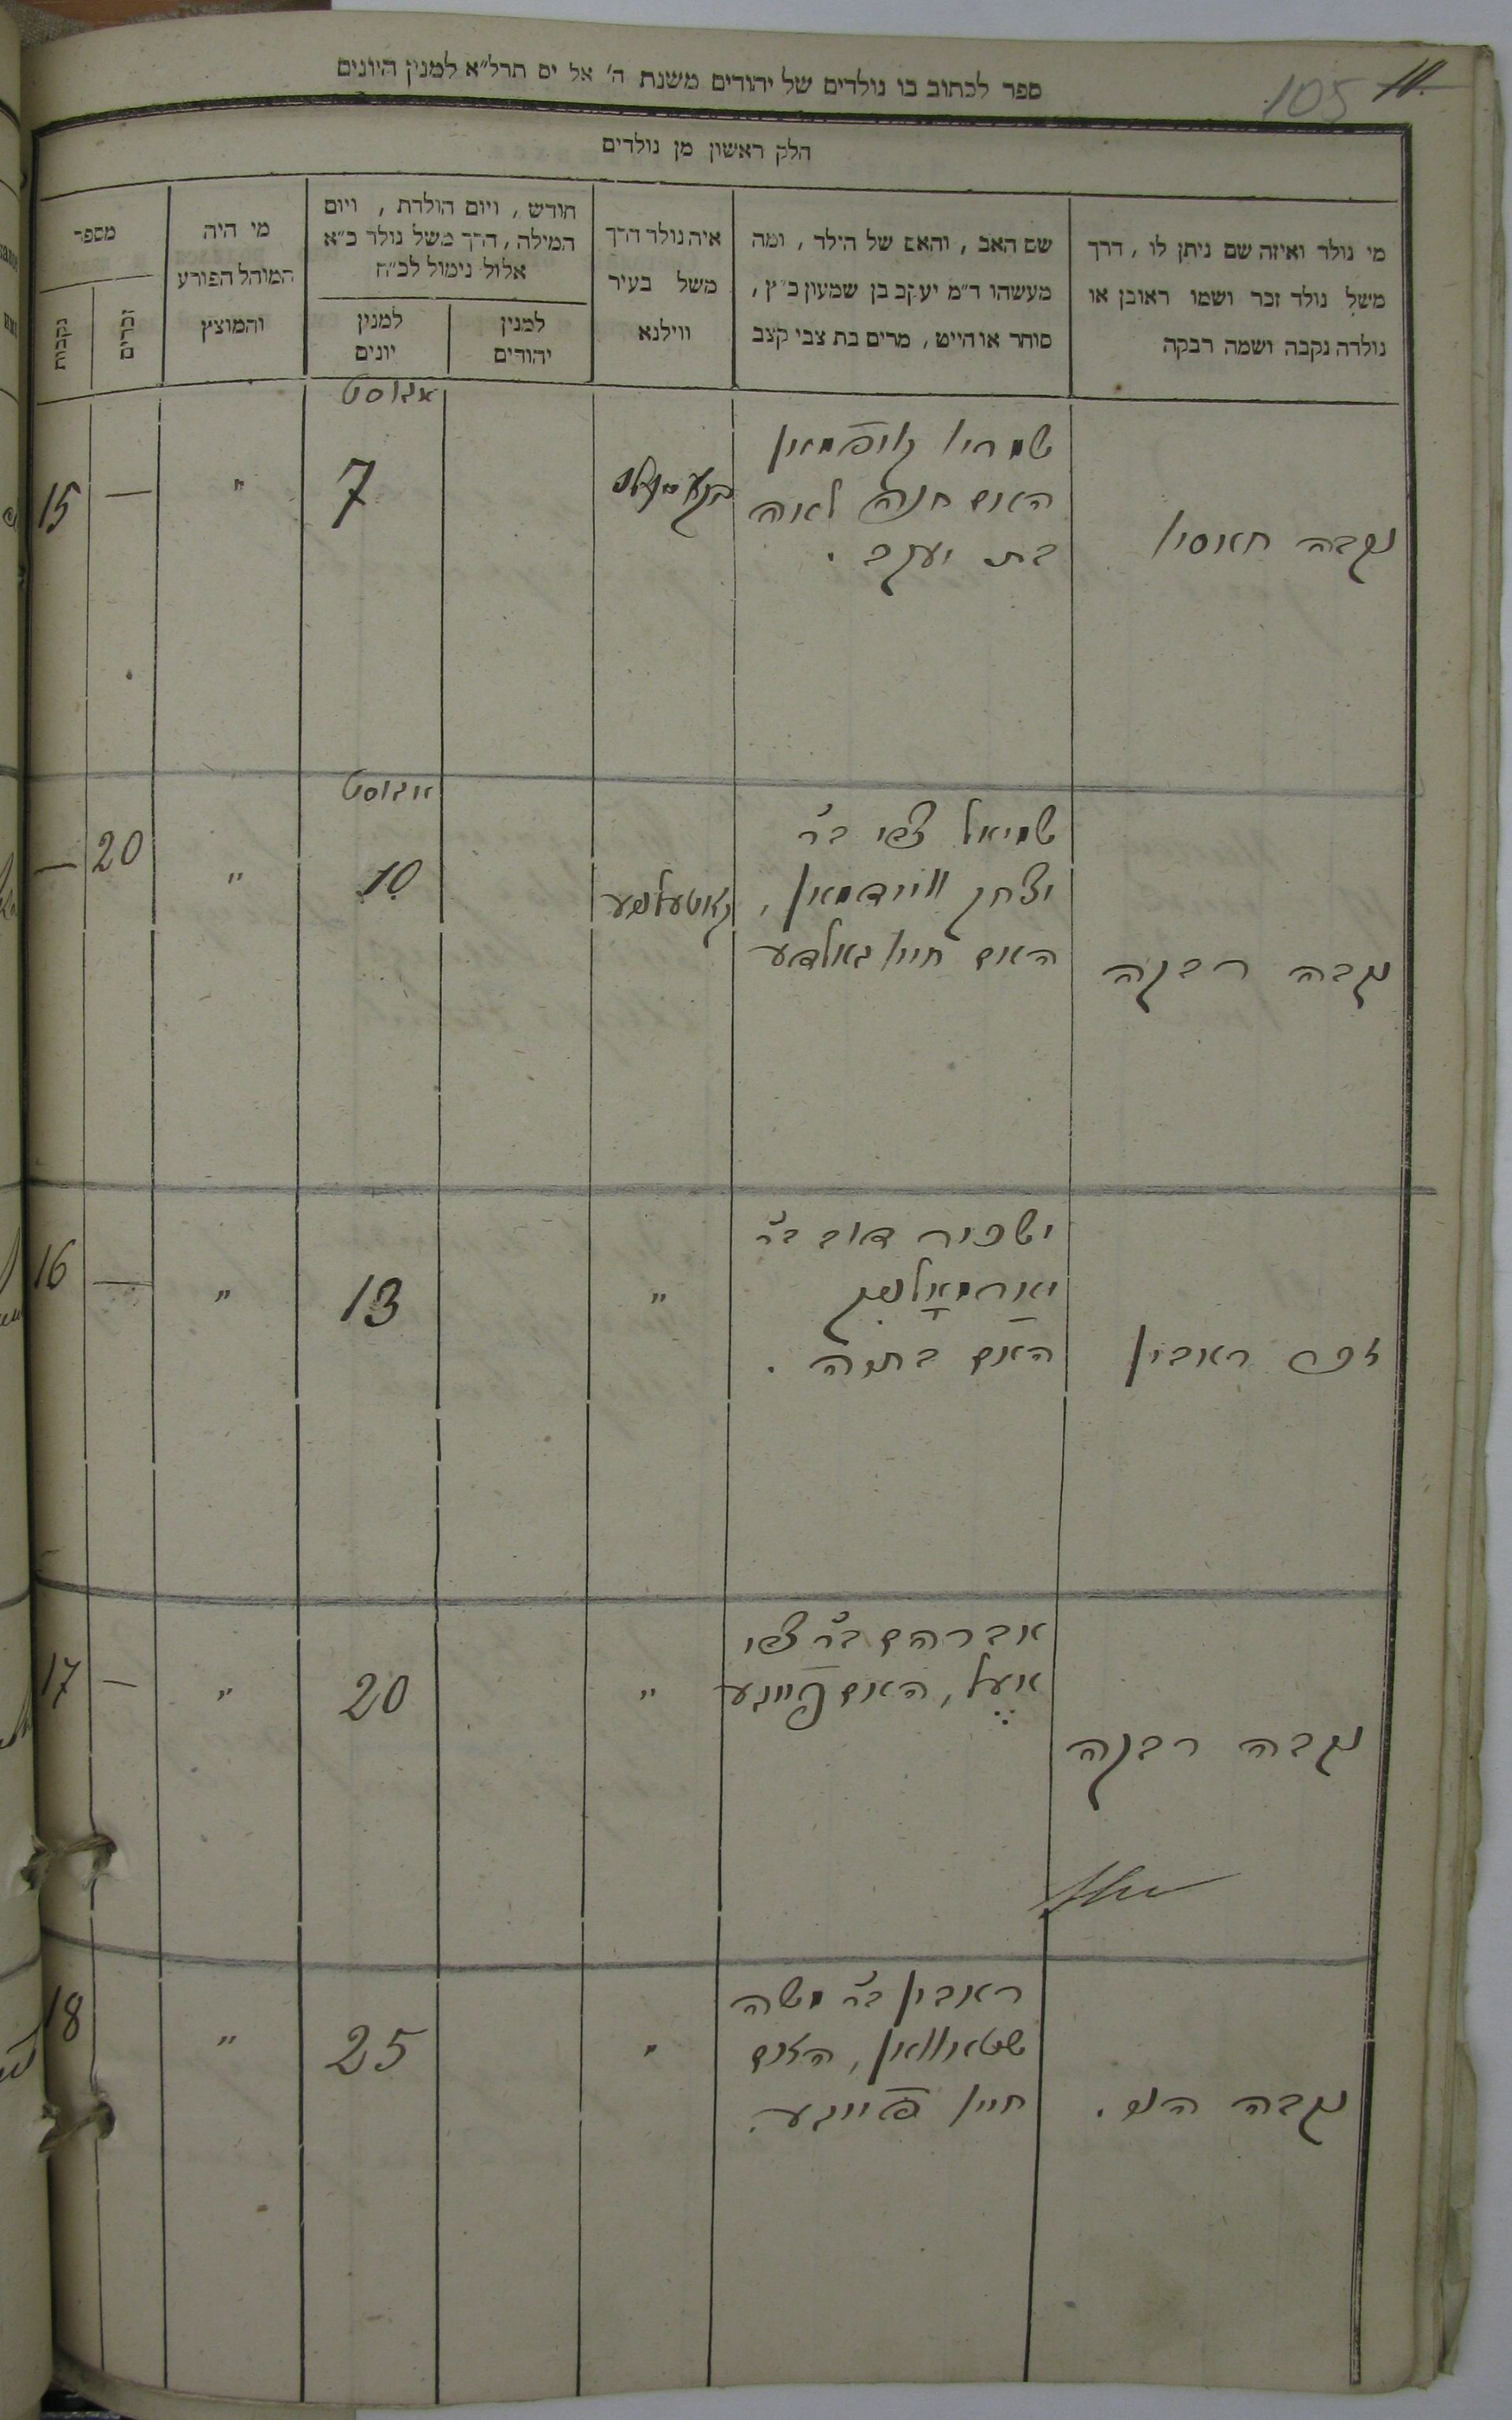 ספר לכתוב בו נולדים של יהודים משנת ה׳ אל׳ ים תרל״א למנין היונים
105 11.
חלק ראשון מן נולדים
מי נולד ואיזה שם ניתן לו, דרך
משל נולד זכר ושמו ראובן או
נולדה נקבה ושמה רבקה
שם האב, והאם של הילד, ומה
מעשהו ד״מ יעקב בן שמעון כ״ץ,
סוחר או חייט, מרים בת צבי קצב
איה נולד דרך
משל בעיר
ווילנא
חודש, ויום הולדת, ויום
המילה, דרך משל נולד כ״א
אלול נימול לכ״ח
למנין
יהודים
למנין
יונים
מי היה
המוהל הפורע
והמוצץ
מספר
זכרים
נקבות
נקבה חאסיא
שמריא קויפמאן
האם חנה לאה
בת יעקב.
אגוסט
7
"
—
15
נקבה רבקה
שמואל צבי ב״ר
יצחק ווידמאן,
האם חיי׳ גאלדע
אגוסט
10
"
20
—
זכר ראובין
ישכיר דוב ב״ר
האם בתיה.
"
13
"
—
16
נקבה רבקה
אברהם ב״ר צבי
האם פייגע
"
20
"
—
17
נקבה הני.
ראובין ב״ר משה
האם
חיי׳ פייגע.
"
25
"
18